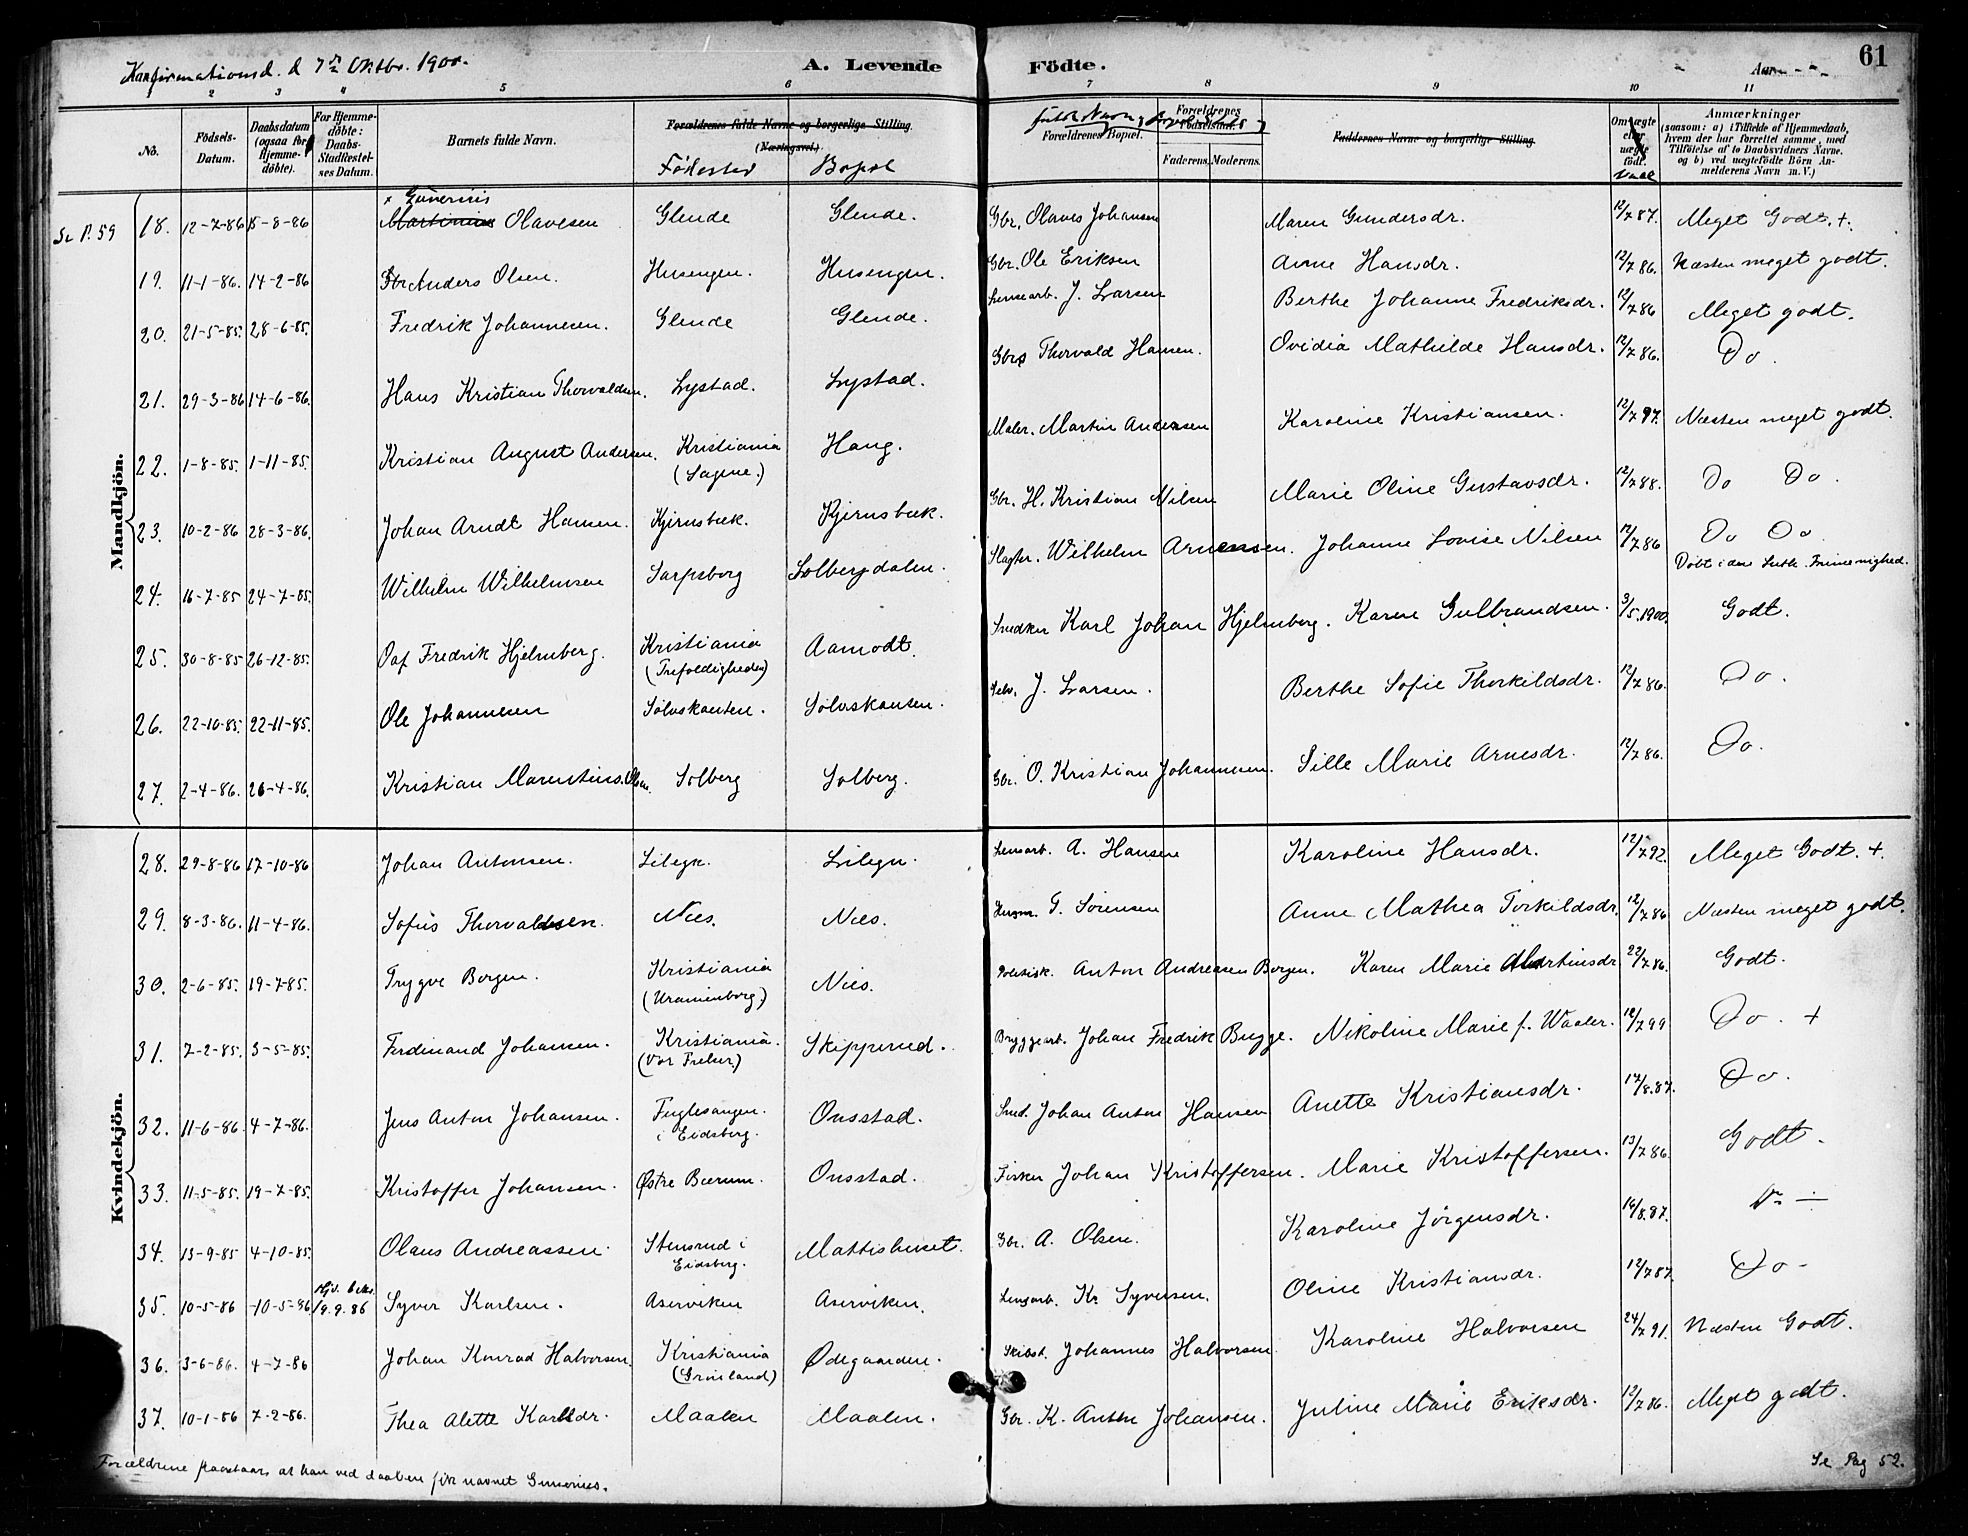 Konfirmationsd. d 7de Oktbr. 1900.
A. Levende Fødte. 61
Aar
1 2 3 4 5 6 7 8 9 10 11
No. Fødsels-Datum. Daabsdatum (ogsaa for Hjemme-døbte). For Hjemme-døbte: Daabs-Stadfestel-ses Datum. Barnets fulde Navn. Forældrenes fulde Navne og borgerlige Stilling. (Næringsvei.) Fødested Bopæl Forældrenes Bopæl. Forældrenes Fødselsaar. Faderens. Moderens. Faddernes Navne og borgerlige Stilling. Om ægte eller uægte født. Anmærkninger (saasom: a) i Tilfælde af Hjemmedaab, hvem der har forrettet samme, med Tilføielse af to Daabsvidners Navne. og b) ved uægtefødte Børn Anmelderens Navn m. V.)
Mandkjøn.
x Gunerius
Se P. 59 18. 12-7-86 15-8-86 Martinius Olavesen Glende Glende. Gbr. Olaves Johansen Maren Gundersdr. 12/7 87. Meget Godt. +.
19. 11-1-86. 14-2-86 Anders Olsen. Husengen. Husengen. Gbr. Ole Eriksen Anne Hansdr. 12/7 86. Næsten meget godt.
20. 21-5-85. 28-6-85. Fredrik Johannesen. Glende Glende. Lensearb. J. Larsen Berthe Johanne Fredriksdr. 12/7 86 Meget godt.
21. 29-3-86 14-6-86. Hans Kristian Thorvaldsen. Lystad. Lystad. Gbr. Thorvald Hansen. Ovidia Mathilde Hansdr. 12/7 86. Do.
22. 1-8-85. 1-11-85. Kristian August Andersen. Kristiania (Sagene.) Haug. Maler. Martin Andersen Karoline Kristiansen. 12/7 97. Næsten meget godt.
23. 10-2-86 28-3-86. Johan Arndt Hansen. Kjernsbæk. Kjernsbæk. Gbr. H. Kristian Nilsen Marie Oline Gustavsdr. 12/7 88. Do Do.
24. 16-7-85 24-7-85. Wilhelm Wilhelmsen Sarpsborg Solbergdalen. Slagter. Wilhelm Arnesen. Johanne Lovise Nilsen 12/7 86 Do Do.
Døbt i den Luth. Frimenighed.
25. 30-8-85 26-12-85. Oaf Fredrik Hjelmberg. Kristiania (Trefoldigheden) Aamodt. Snedker Karl Johan Hjelmberg. Karen Gulbrandsen. 3/5.1900. Godt.
26. 22-10-85. 22-11-85. Ole Johannesen Sølvskansen. Sølvskansen. Selv. J. Larsen. Berthe Sofie Thorkildsdr. 12/7 86. Do.
27. 2-4-86. 26-4-86. Kristian Marentius Olsen. Solberg Solberg. Gbr. O. Kristian Johannesen. Sille Marie Arnesdr. 12/7 86. Do.
Kvindekjøn.
28. 29-8-86 17-10-86 Johan Antonsen. Lilegn. Lilegn. Lensarb. A. Hansen Karoline Hansdr. 12/7 92. Meget Godt. +.
29. 8-3-86. 11-4-86. Sofus Thorvaldsen. Næs. Næs. Husm. T. Sørensen Anne Mathea Torkildsdr. 12/7 86 Næsten meget godt.
30. 2-6-85. 19-7-85. Trygve Borgen. Kristiania (Uranienborg.) Næs. Politisk. Anton Andreasen Borgen. Karen Marie Martinsdr 22/7 86. Godt.
31. 7-2-85. 3-5-85. Ferdinand Johansen. Kristiania. (Vor Frelser.) Skipperud. Bryggearb. Johan Fredrik Bugge. Nikoline Marie f. Waaler. 12/7 99 Do. +
32. 11-6-86. 4-7-86. Jens Anton Johansen. Fuglesangen. i Eidsberg. Onsstad. Smed. Johan Anton Hansen Anette Kristiansdr. 17/8.87. Do.
33. 11-5-85. 19-7-85. Kristoffer Johansen. Østre Bærum. Onsstad. Fisker Johan Kristoffersen. Marie Kristoffersen. 13/7 86. Godt.
34. 13-9-85 4-10-85. Olaus Andreassen. Stensrud i Eidsberg. Mattishuset. Gbr. A. Olsen. Karoline Jørgensdr. 16/8.87. Do
35. 10-5-86 10-5-86 Hjd. beks. 19.9.86 Syver Karlsen. Aserviken Aserviken. Lensarb. Kr. Syversen. Oline Kristiansdr. 12/7 87. Do
36. 3-6-86. 4-7-86 Johan Konrad Halvorsen. Kristiania (Grønland) Ødegaarden. Skibst. Johannes Halvorsen. Karoline Halvorsen 24/7 91. Næsten Godt.
37. 10-1-86 7-2-86. Thea Alette Karlsdr. Maalen Maalen. Gbr. K. Anton Johansen. Juline Marie Eriksdr. 12/7 86. Meget godt.
Forældrene paastaar, at han ved daaben fik navnet Gunerius.
Se Pag 52.